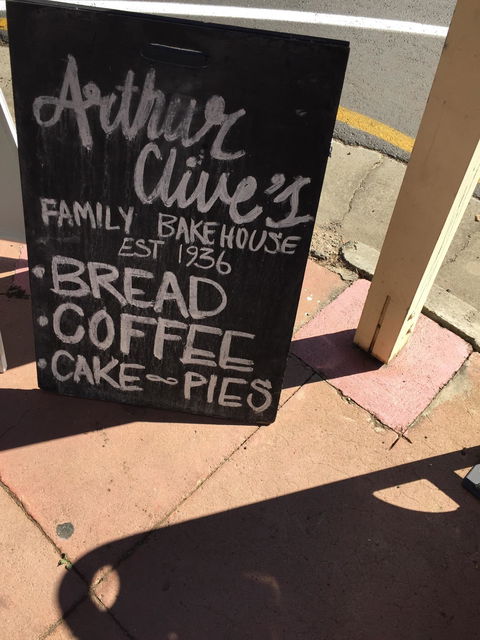 Arthur
Clive's
FAMILY BAKEHOUSE
EST 1936
• BREAD
• COFFEE
• CAKE ~ PIES